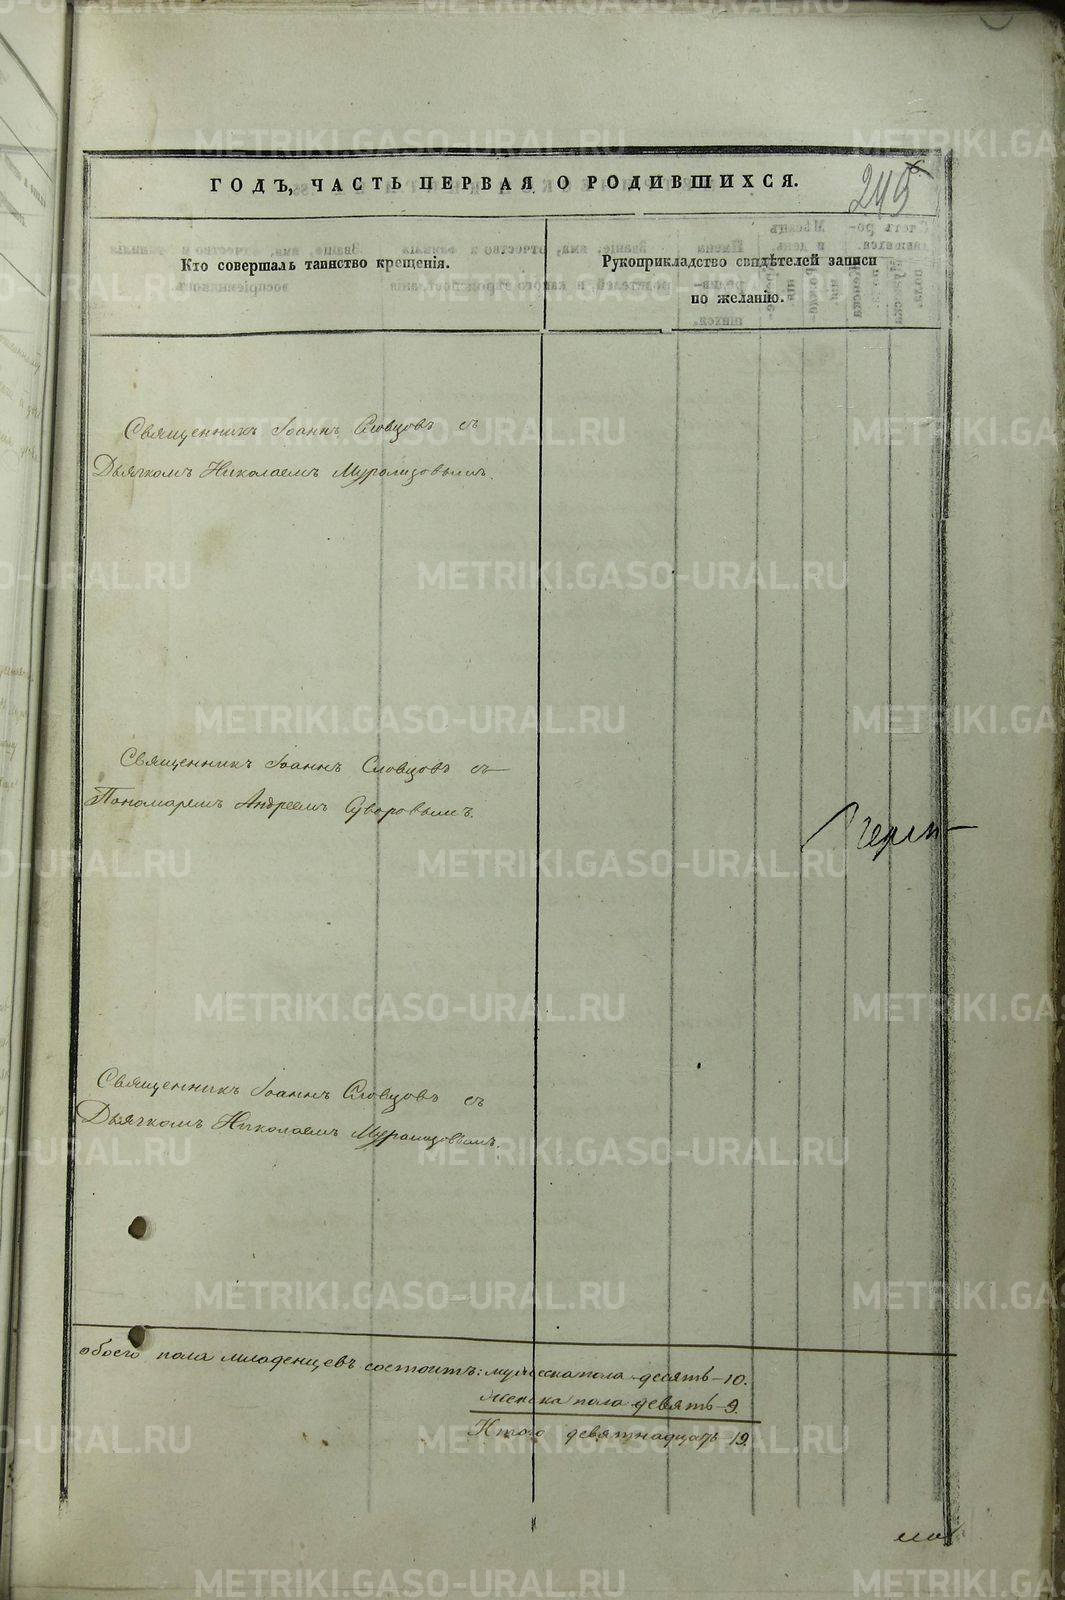 ГОДЪ, ЧАСТЬ ПЕРВАЯ О РОДИВШИХСЯ.
249
Кто совершалъ таинство крещенія.
Рукоприкладство свидѣтелей записи
по желанію.
Священникъ Іоаннъ Словцовъ съ
Дьячкомъ Николаемъ
Священникъ Іоаннъ Словцовъ съ
Пономаремъ Андреемъ Суворовымъ.
Священникъ Іоаннъ Словцовъ съ
Дьячкомъ Николаемъ
обоего пола младенцевъ состоитъ: мужеска пола десять-10.
Женска пола девять-9.
Итого девятнадцать-19.
METRIKI.GASO-URAL.RU